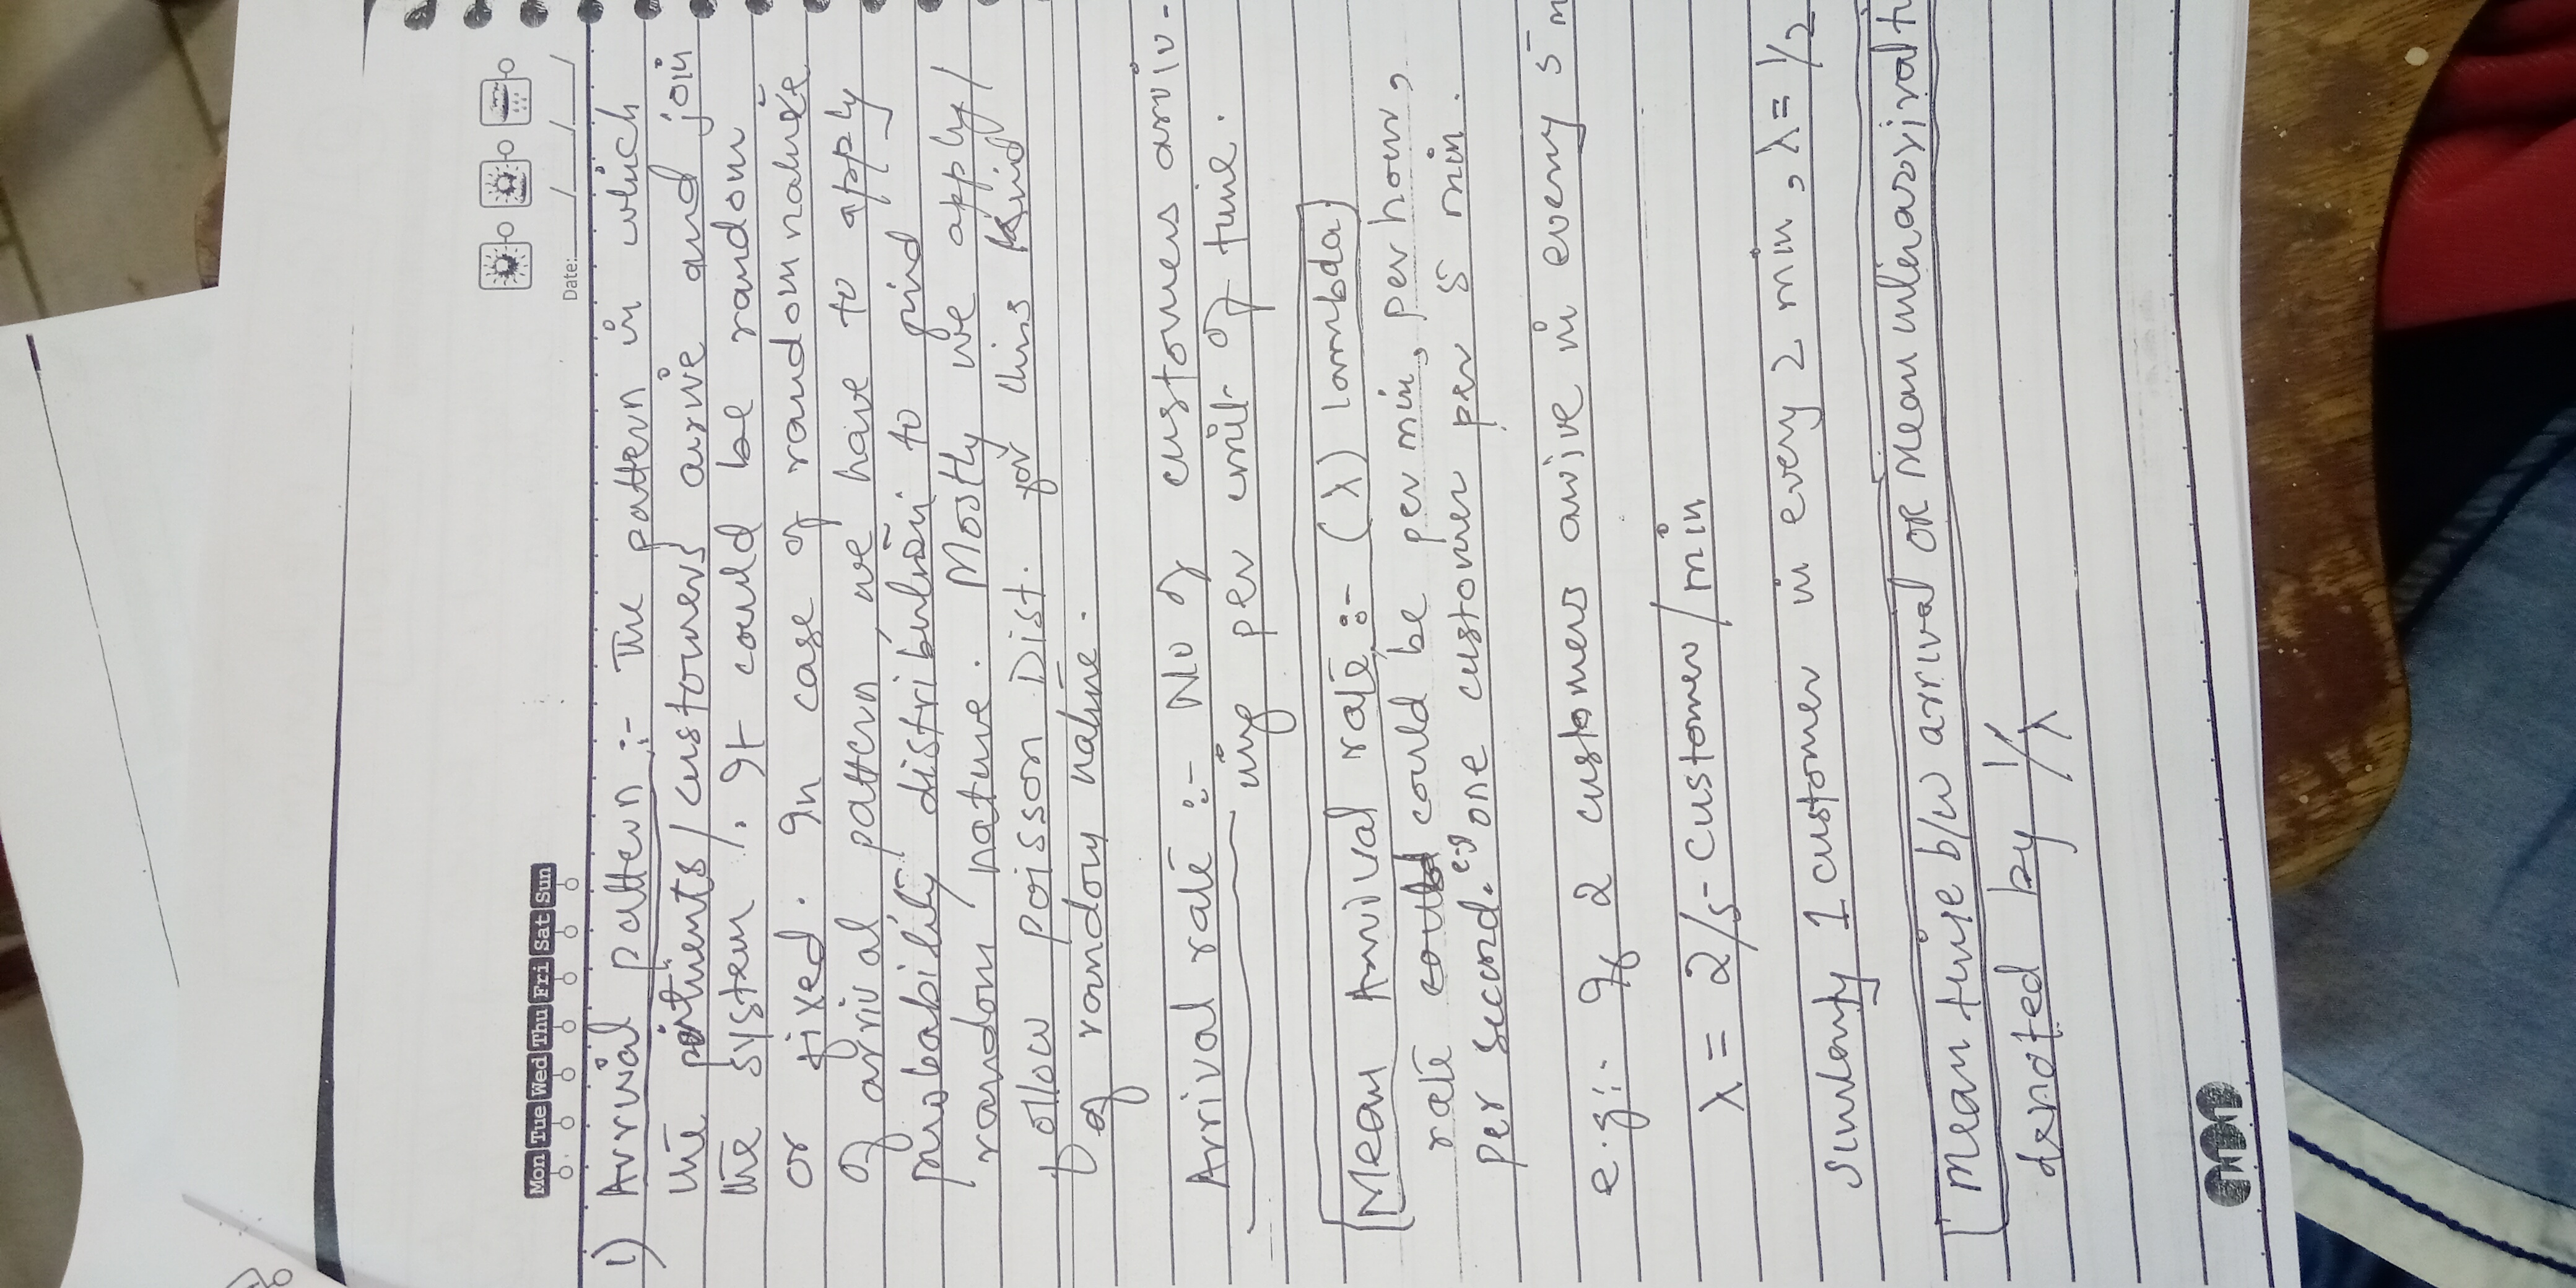 Mon Tue Wed Thu Fri Sat Sun
Date: / / /
1) Arrival pattern :- The pattern in which
the / customers arrive and join
the system. It could be random
or fixed. In case of random nature
of arrival pattern, we have to apply
probability distribution to find
random nature. Mostly we apply/
follow poisson Dist. for this kind
of random nature.
Arrival rate :- No of customers arriv-
ing per unit of time.
Mean Arrival rate :- (λ) lambda
rate could could be per min, per hour,
per second. e.g one customer per 5 min.
e.g:- If 2 customers arrive in every 5 m
λ = 2/5 customer/min
Similarly 1 customer in every 2 min, λ = 1/2
Mean time b/w arrival OR Mean interarrival ti
denoted by 1/λ